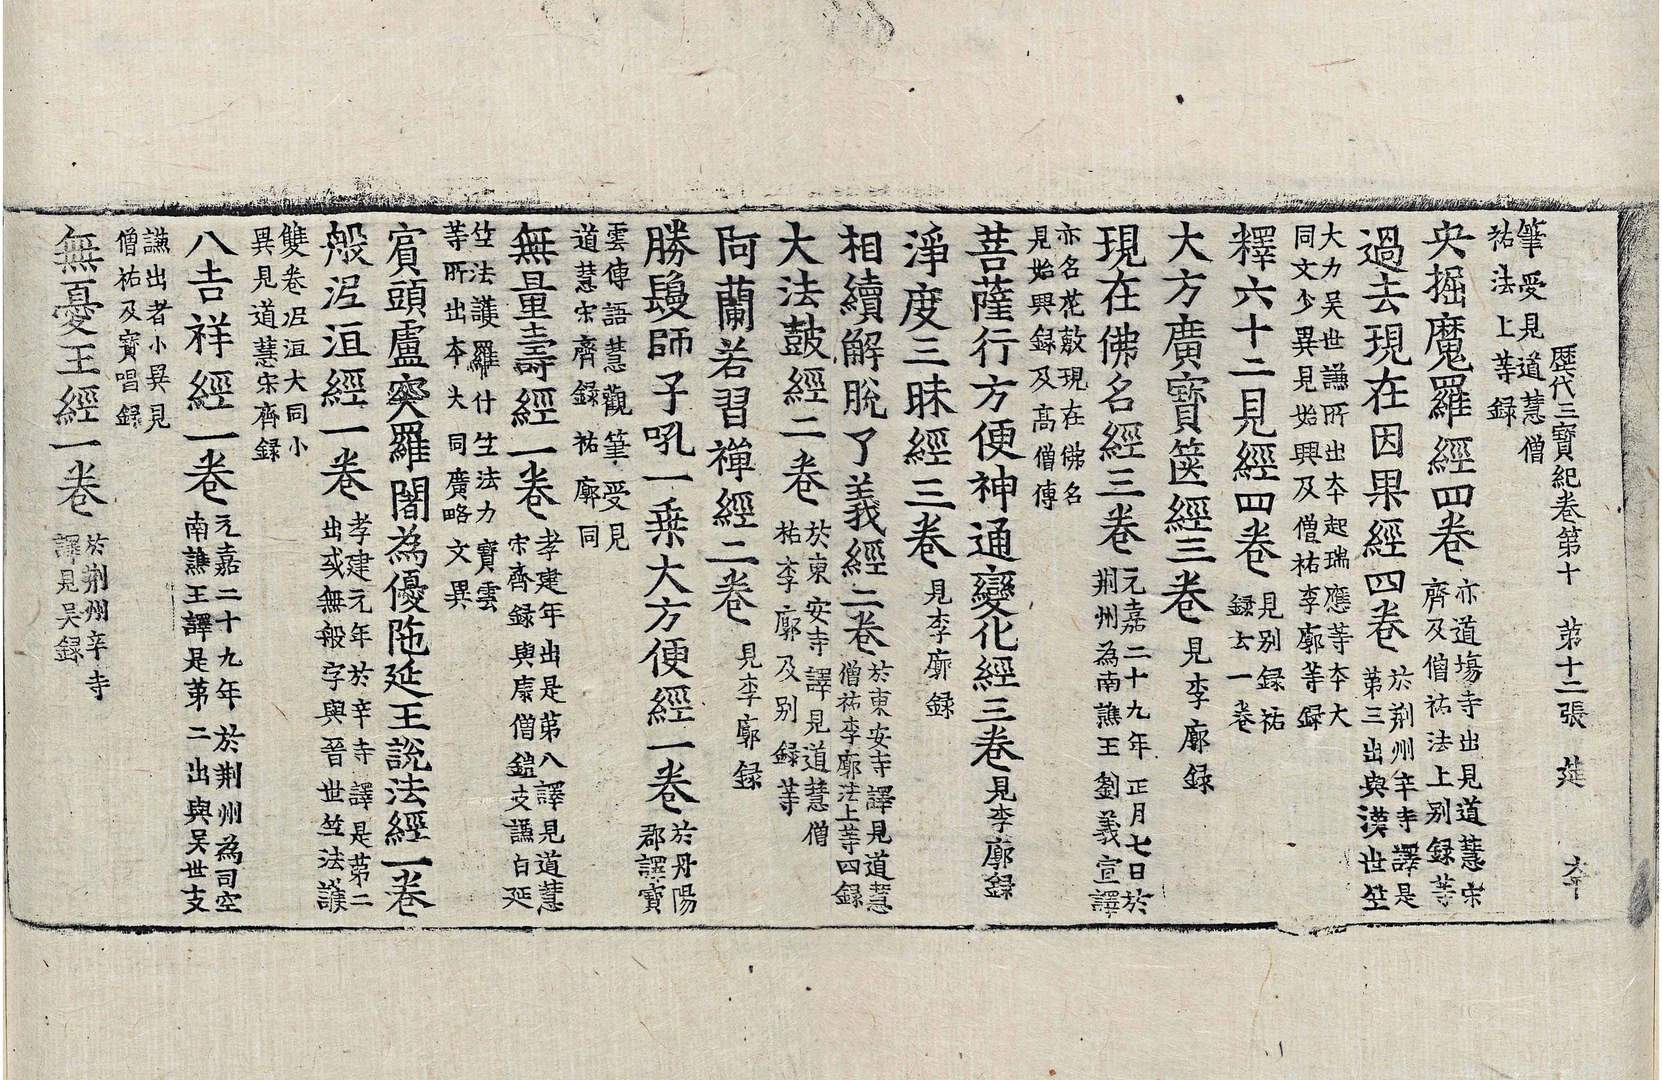 歷代三寶紀卷第十　第十二張　莚　夲
筆受見道慧僧
祐法上等録
央掘魔羅經四卷 亦道塲寺出見道慧宋
齊及僧祐法上別録等
過去現在因果經四卷 於荆州辛寺譯是
第三出與漢世竺
大力吴世謙所出夲起瑞應等夲大
同文少異見始興及僧祐李廓等録
釋六十二見經四卷 見別録祐
録云一卷
大方廣寶篋經三卷 見李廓録
現在佛名經三卷 元嘉二十九年正月七日於
荆州為南譙王劉義宣譯
亦名花敷現在佛名
見始興録及髙僧傳
菩薩行方便神通變化經三卷 見李廓録
淨度三昧經三卷 見李廓録
相續解脫了義經二卷 於東安寺譯見道慧
僧祐李廓法上等四録
大法鼓經二卷 於東安寺譯見道慧僧
祐李廓及別録等
阿蘭若習禪經二卷 見李廓録
勝鬘師子吼一乗大方便經一卷 於丹陽
郡譯寶
雲傳語慧觀筆受見
道慧宋齊録祐廓同
無量壽經一卷 孝建年出是第八譯見道慧
宋齊録與康僧鎧支謙白延
竺法護羅什生法力寶雲
等所出夲大同廣略文異
賓頭盧突羅闍為優陁延王說法經一卷
般泥洹經一卷 孝建元年於辛寺譯是第二
出或無般字與晉世竺法護
雙卷泥洹大同小
異見道慧宋齊録
八吉祥經一卷 元嘉二十九年於荆州為司空
南譙王譯是第二出與吴世支
謙出者小異見
僧祐及寶唱録
無憂王經一卷 於荆州辛寺
譯見吴録